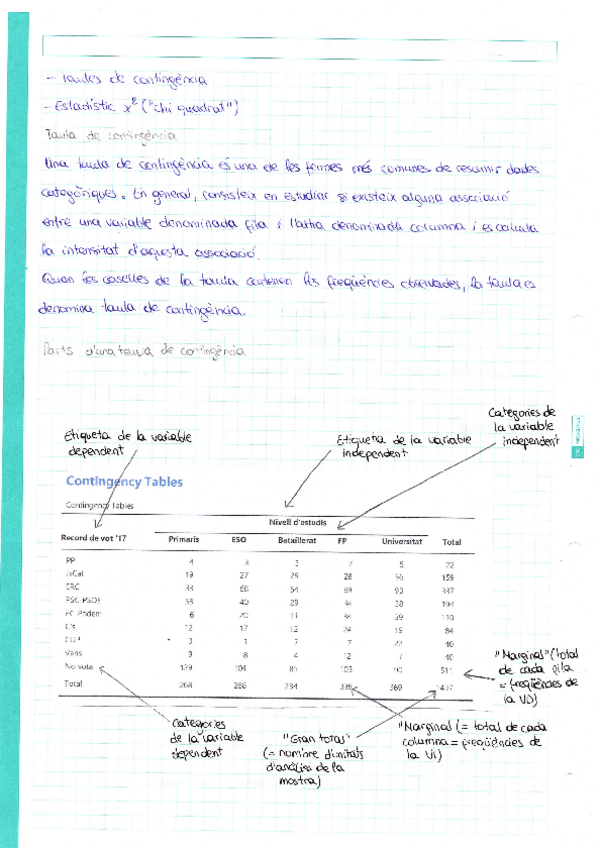 - Taules de contingència
- Estadístic x² ("chi quadrat")
Taula de contingència
Una taula de contingència és una de les formes més comunes de resumir dades
categòriques. En general, consisteix en estudiar si existeix alguna associació
entre una variable denominada fila i l'altra denominada columna i es calcula
la intensitat d'aquesta associació.
Quan les caselles de la taula contenen les freqüències observades, la taula es
denomina taula de contingència.
Parts d'una taula de contingència
Categories de
la variable
independent
Etiqueta de la variable
dependent
Etiqueta de la variable
independent
Contingency Tables
Contingency Tables
Nivell d'estudis
Record de vot '17 Primaris ESO Batxillerat FP Universitat Total
PP 4 3 3 7 5 22
JxCat 19 27 29 28 56 159
ERC 33 69 93 337
PSC-PSOE 40 29 38 194
EC-Podem 6 20 11 34 39 110
C's 12 17 12 24 19 84
CUP 3 1 7 7 22 40
Varis 9 8 4 12 7 40
No vota 129 104 85 103 90 511
Total 268 286 234 369
"Marginal" (total
de cada fila
= freqüències de
la VD)
Categories
de la variable
dependent
"Gran total"
(= nombre d'unitats
d'anàlisi de la
mostra)
"Marginal (= total de cada
columna = freqüències de
la VI)